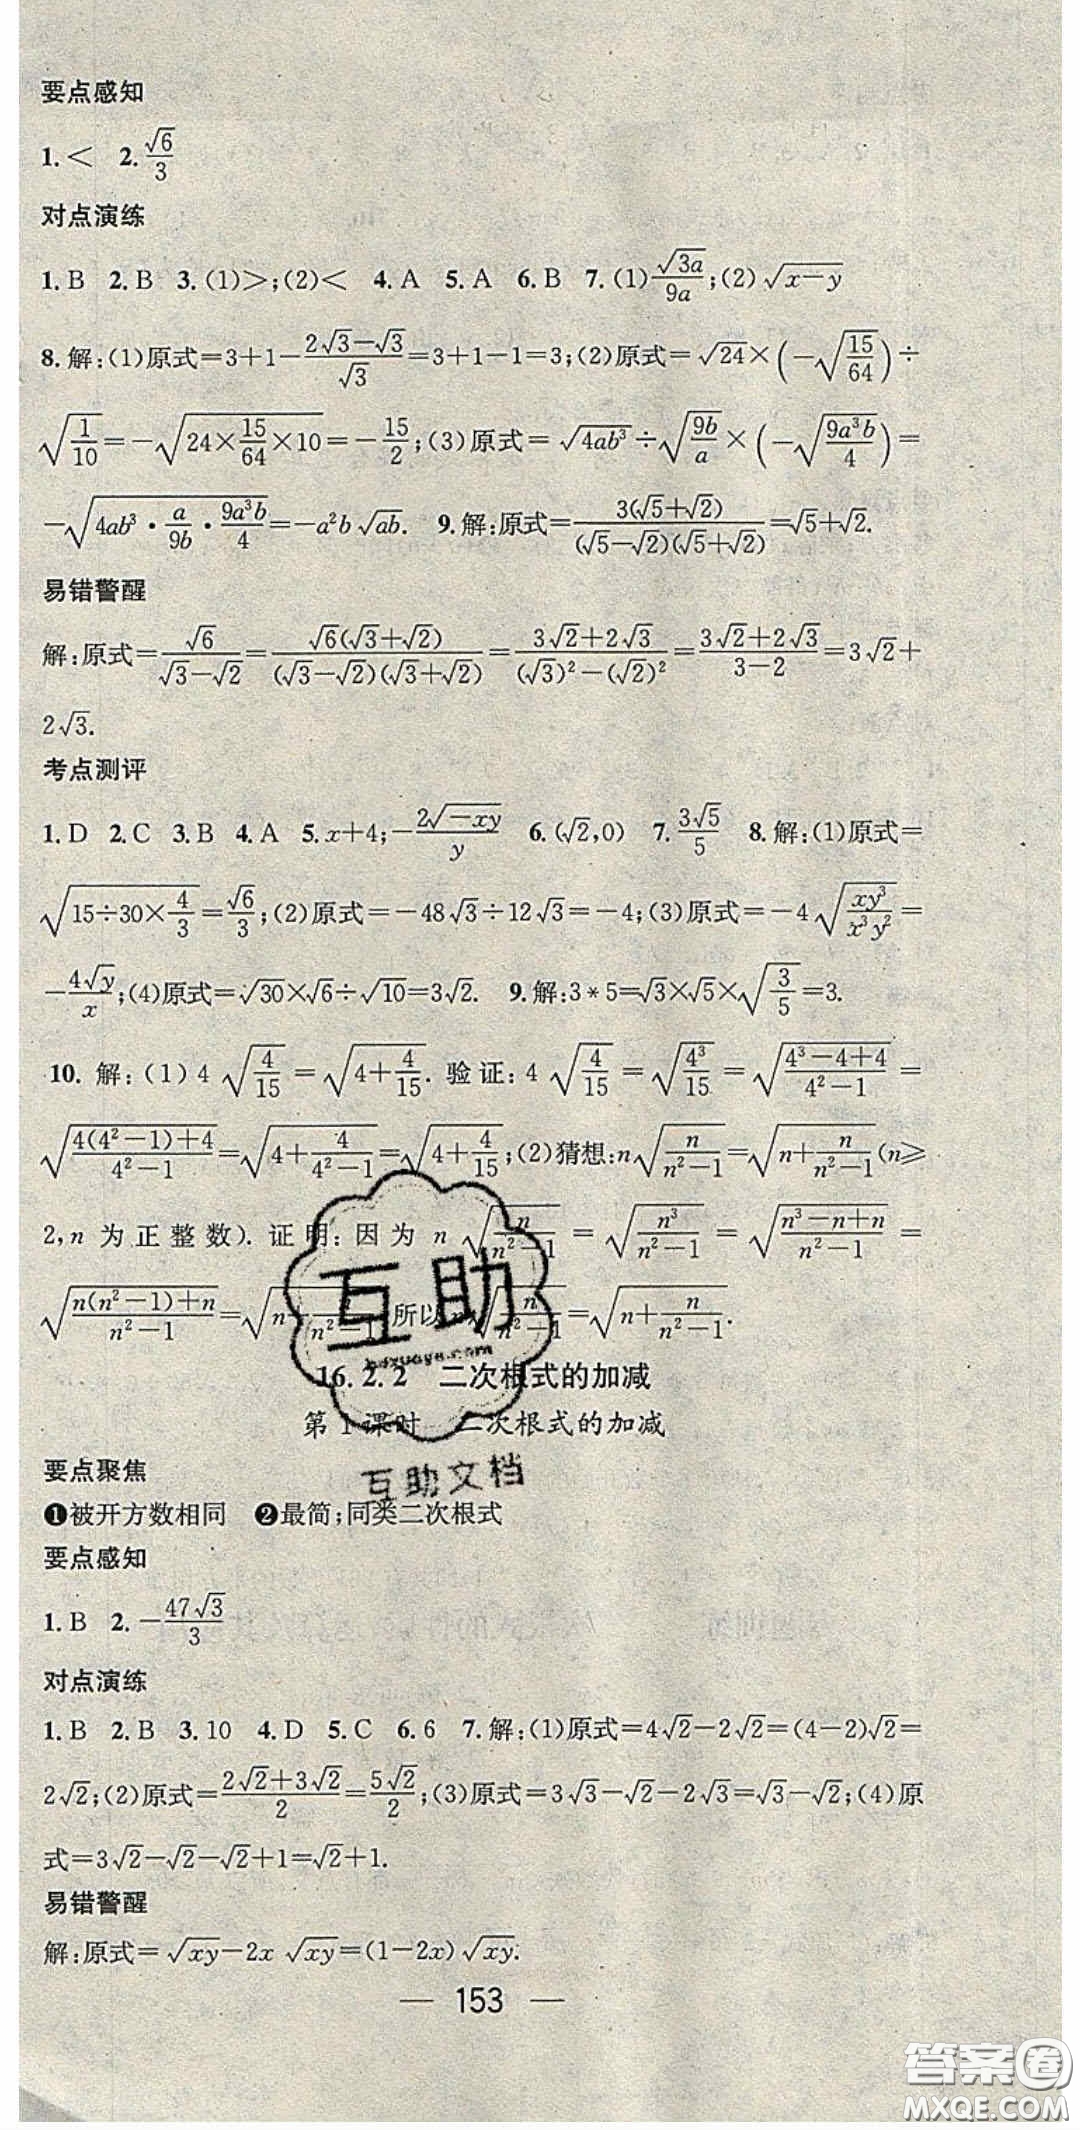 要点感知
1.< 2.√6/3
对点演练
1.B 2.B 3.(1)>;(2)< 4.A 5.A 6.B 7.(1)√(3a)/(9a);(2)√(x-y)
8.解:(1)原式=3+1-(2√3-√3)/√3=3+1-1=3;(2)原式=√24×(-√(15/64))÷
√(1/10)=-√(24×15/64×10)=-15/2;(3)原式=√(4ab³)÷√(9b/a)×(-√(9a³b/4))=
-√(4ab³·a/(9b)·9a³b/4)=-a²b√(ab). 9.解:原式=3(√5+√2)/((√5-√2)(√5+√2))=√5+√2.
易错警醒
解:原式=√6/(√3-√2)=√6(√3+√2)/((√3-√2)(√3+√2))=(3√2+2√3)/((√3)²-(√2)²)=(3√2+2√3)/(3-2)=3√2+
2√3.
考点测评
1.D 2.C 3.B 4.A 5.x+4;-2√(-xy)/y 6.(√2,0) 7.3√5/5 8.解:(1)原式=
√(15÷30×4/3)=√6/3;(2)原式=-48√3÷12√3=-4;(3)原式=-4√(xy³/(x³y²))=
-4√y/x;(4)原式=√30×√6÷√10=3√2. 9.解:3*5=√3×√5×√(3/5)=3.
10.解:(1)4√(4/15)=√(4+4/15).验证:4√(4/15)=√(4³/15)=√((4³-4+4)/(4²-1))=
√((4(4²-1)+4)/(4²-1))=√(4+4/(4²-1))=√(4+4/15);(2)猜想:n√(n/(n²-1))=√(n+n/(n²-1))(n≥
2,n为正整数).证明:因为n√(n/(n²-1))=√(n³/(n²-1))=√((n³-n+n)/(n²-1))=
√((n(n²-1)+n)/(n²-1))=√(n+n/(n²-1)),所以n√(n/(n²-1))=√(n+n/(n²-1)).
互助
bdzuoye.com
16.2.2 二次根式的加减
第1课时 二次根式的加减
互助文档
要点聚焦
❶被开方数相同 ❷最简;同类二次根式
要点感知
1.B 2.-47√3/3
对点演练
1.B 2.B 3.10 4.D 5.C 6.6 7.解:(1)原式=4√2-2√2=(4-2)√2=
2√2;(2)原式=(2√2+3√2)/2=5√2/2;(3)原式=3√3-√2-2√3=√3-√2;(4)原
式=3√2-√2-√2+1=√2+1.
易错警醒
解:原式=√(xy)-2x√(xy)=(1-2x)√(xy).
— 153 —
答案圈
MXQE.COM